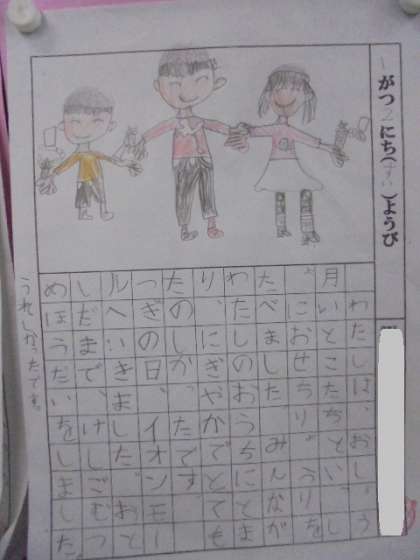 1がつ2にち(すい)ようび
わたしは、おしょう
月いとこたちといっし
ょにおせちりょうりを
たべました。みんなが
わたしのおうちにとま
り、にぎやかでとても
たのしかったです。
つぎの日、イオンモー
ルへいきました。おと
しだまで、けしごむつ
めほうだいをしました。
うれしかったです。